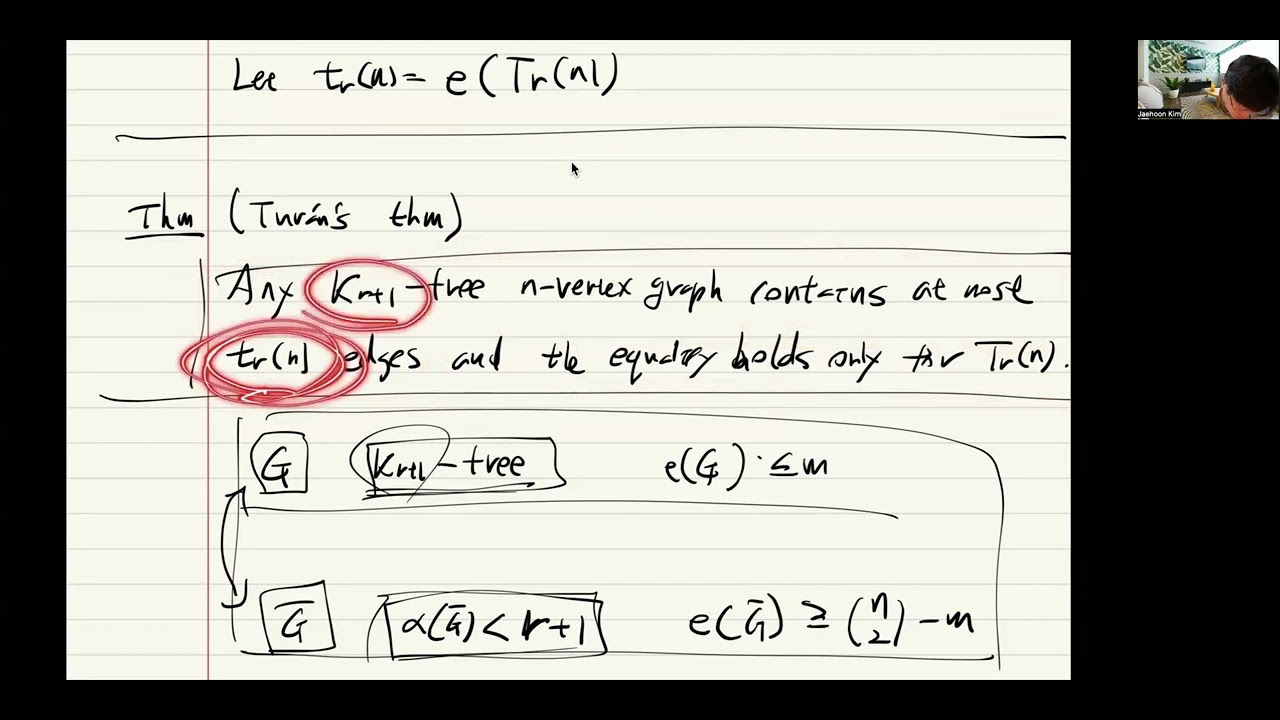 Let tr(n) = e(Tr(n))
Thm (Turán's thm)
Any Kr+1-free n-vertex graph contains at most
tr(n) edges and the equality holds only for Tr(n).
G Kr+1-free e(G) ≤ m
Ḡ α(Ḡ) < r+1 e(Ḡ) ≥ (n 2) - m
Jaehoon Kim